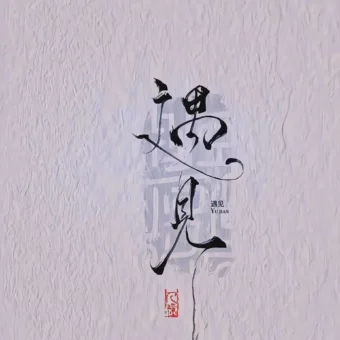 遇见
遇见
YUJIAN